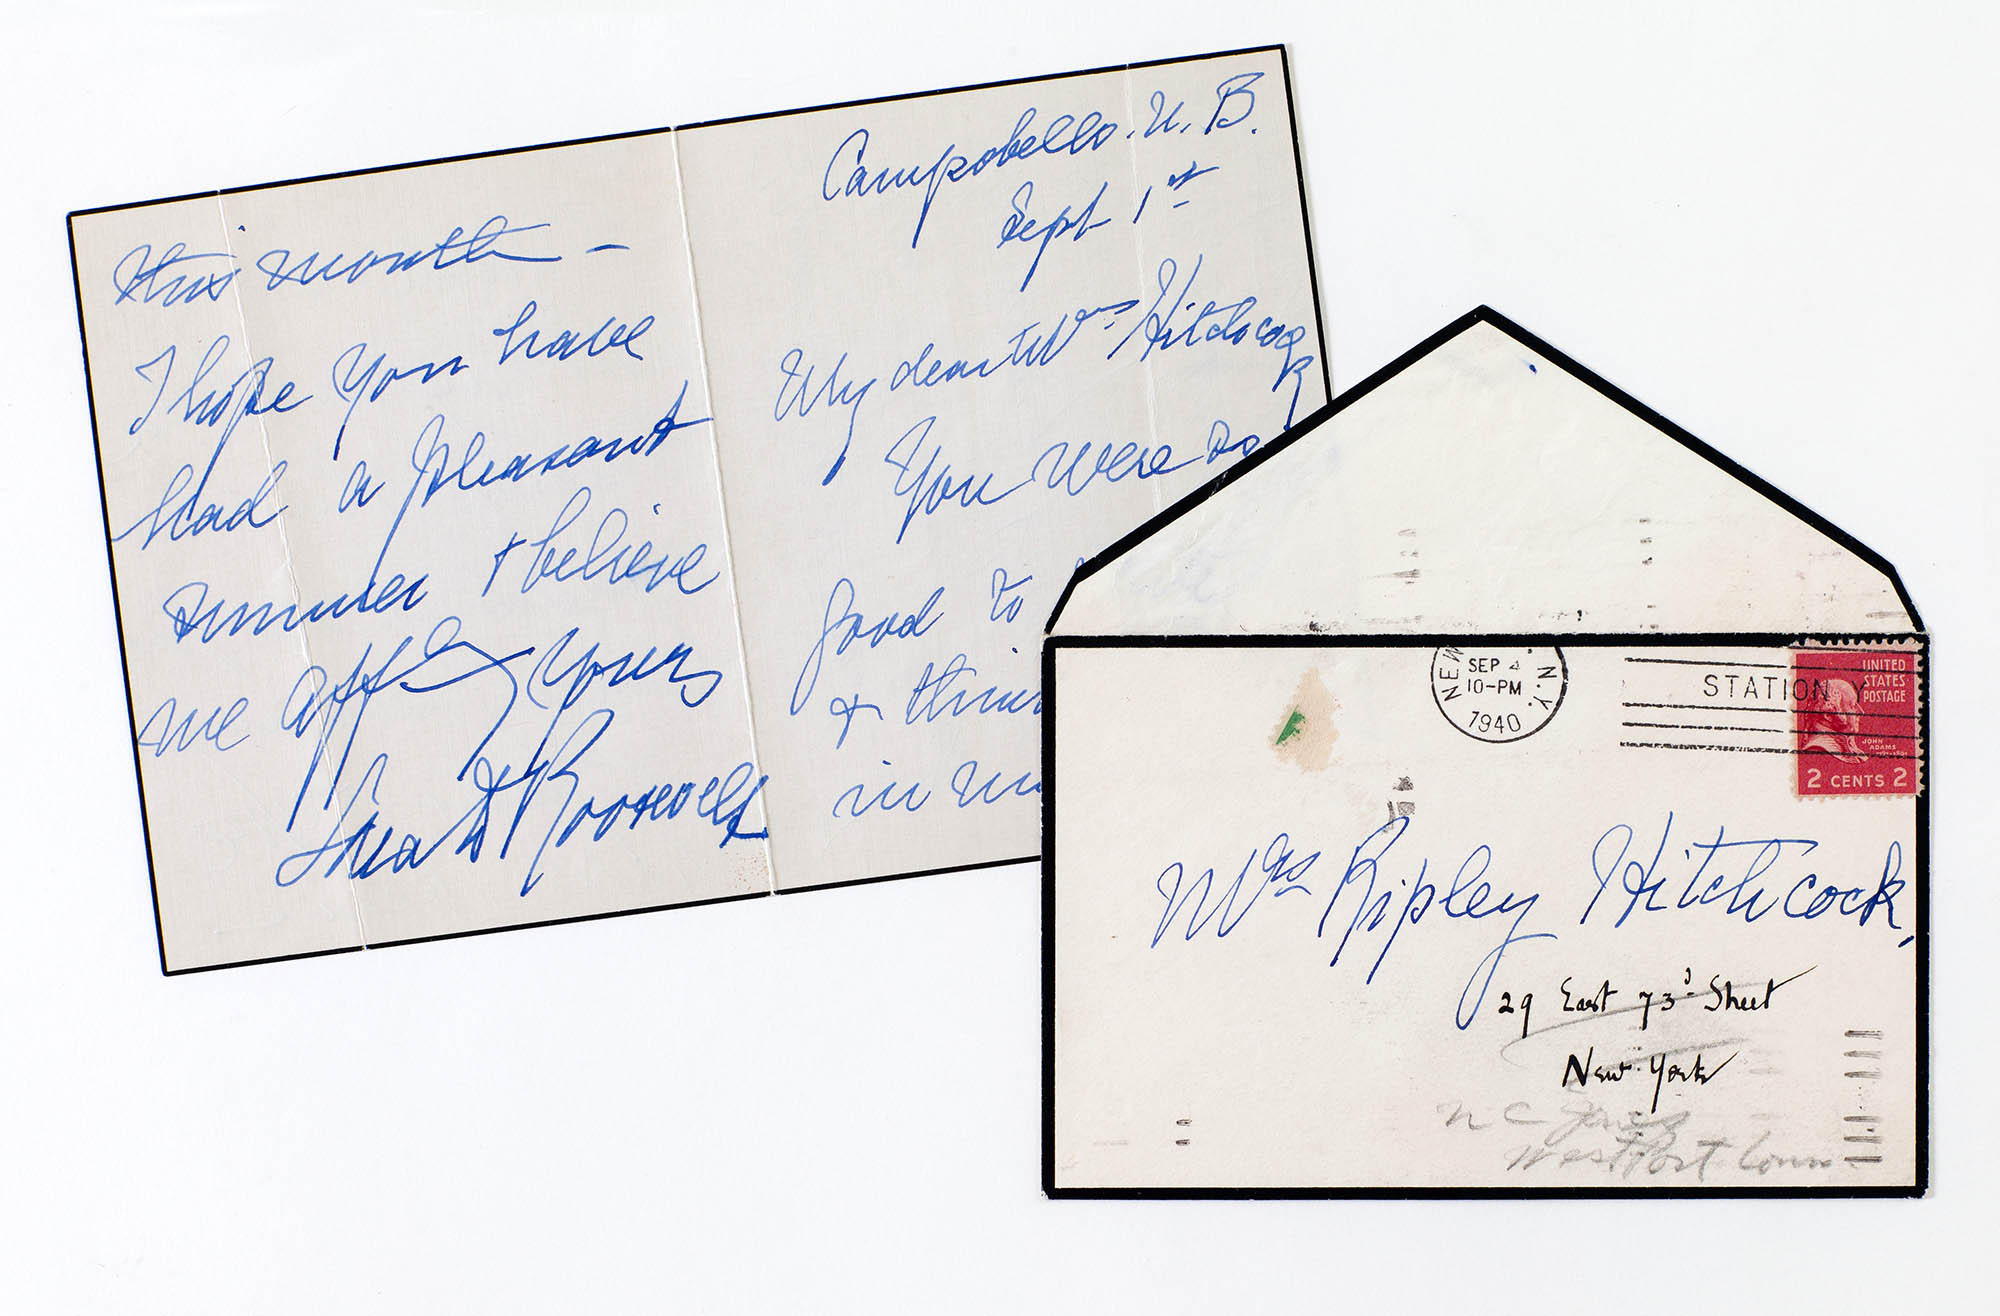 Campobello. N. B.
Sept 1st
My dear Mrs Hitchcock
You were so
good to
& thin
in
this month —
I hope you have
had a pleasant
summer & believe
me affly yours
Sara D Roosevelt
NEW N.Y.
SEP 4
10-PM
1940
STATION Y
UNITED
STATES
POSTAGE
JOHN
ADAMS
2 CENTS 2
Mrs Ripley Hitchcock,
29 East 73d Street
New York
Westport Conn